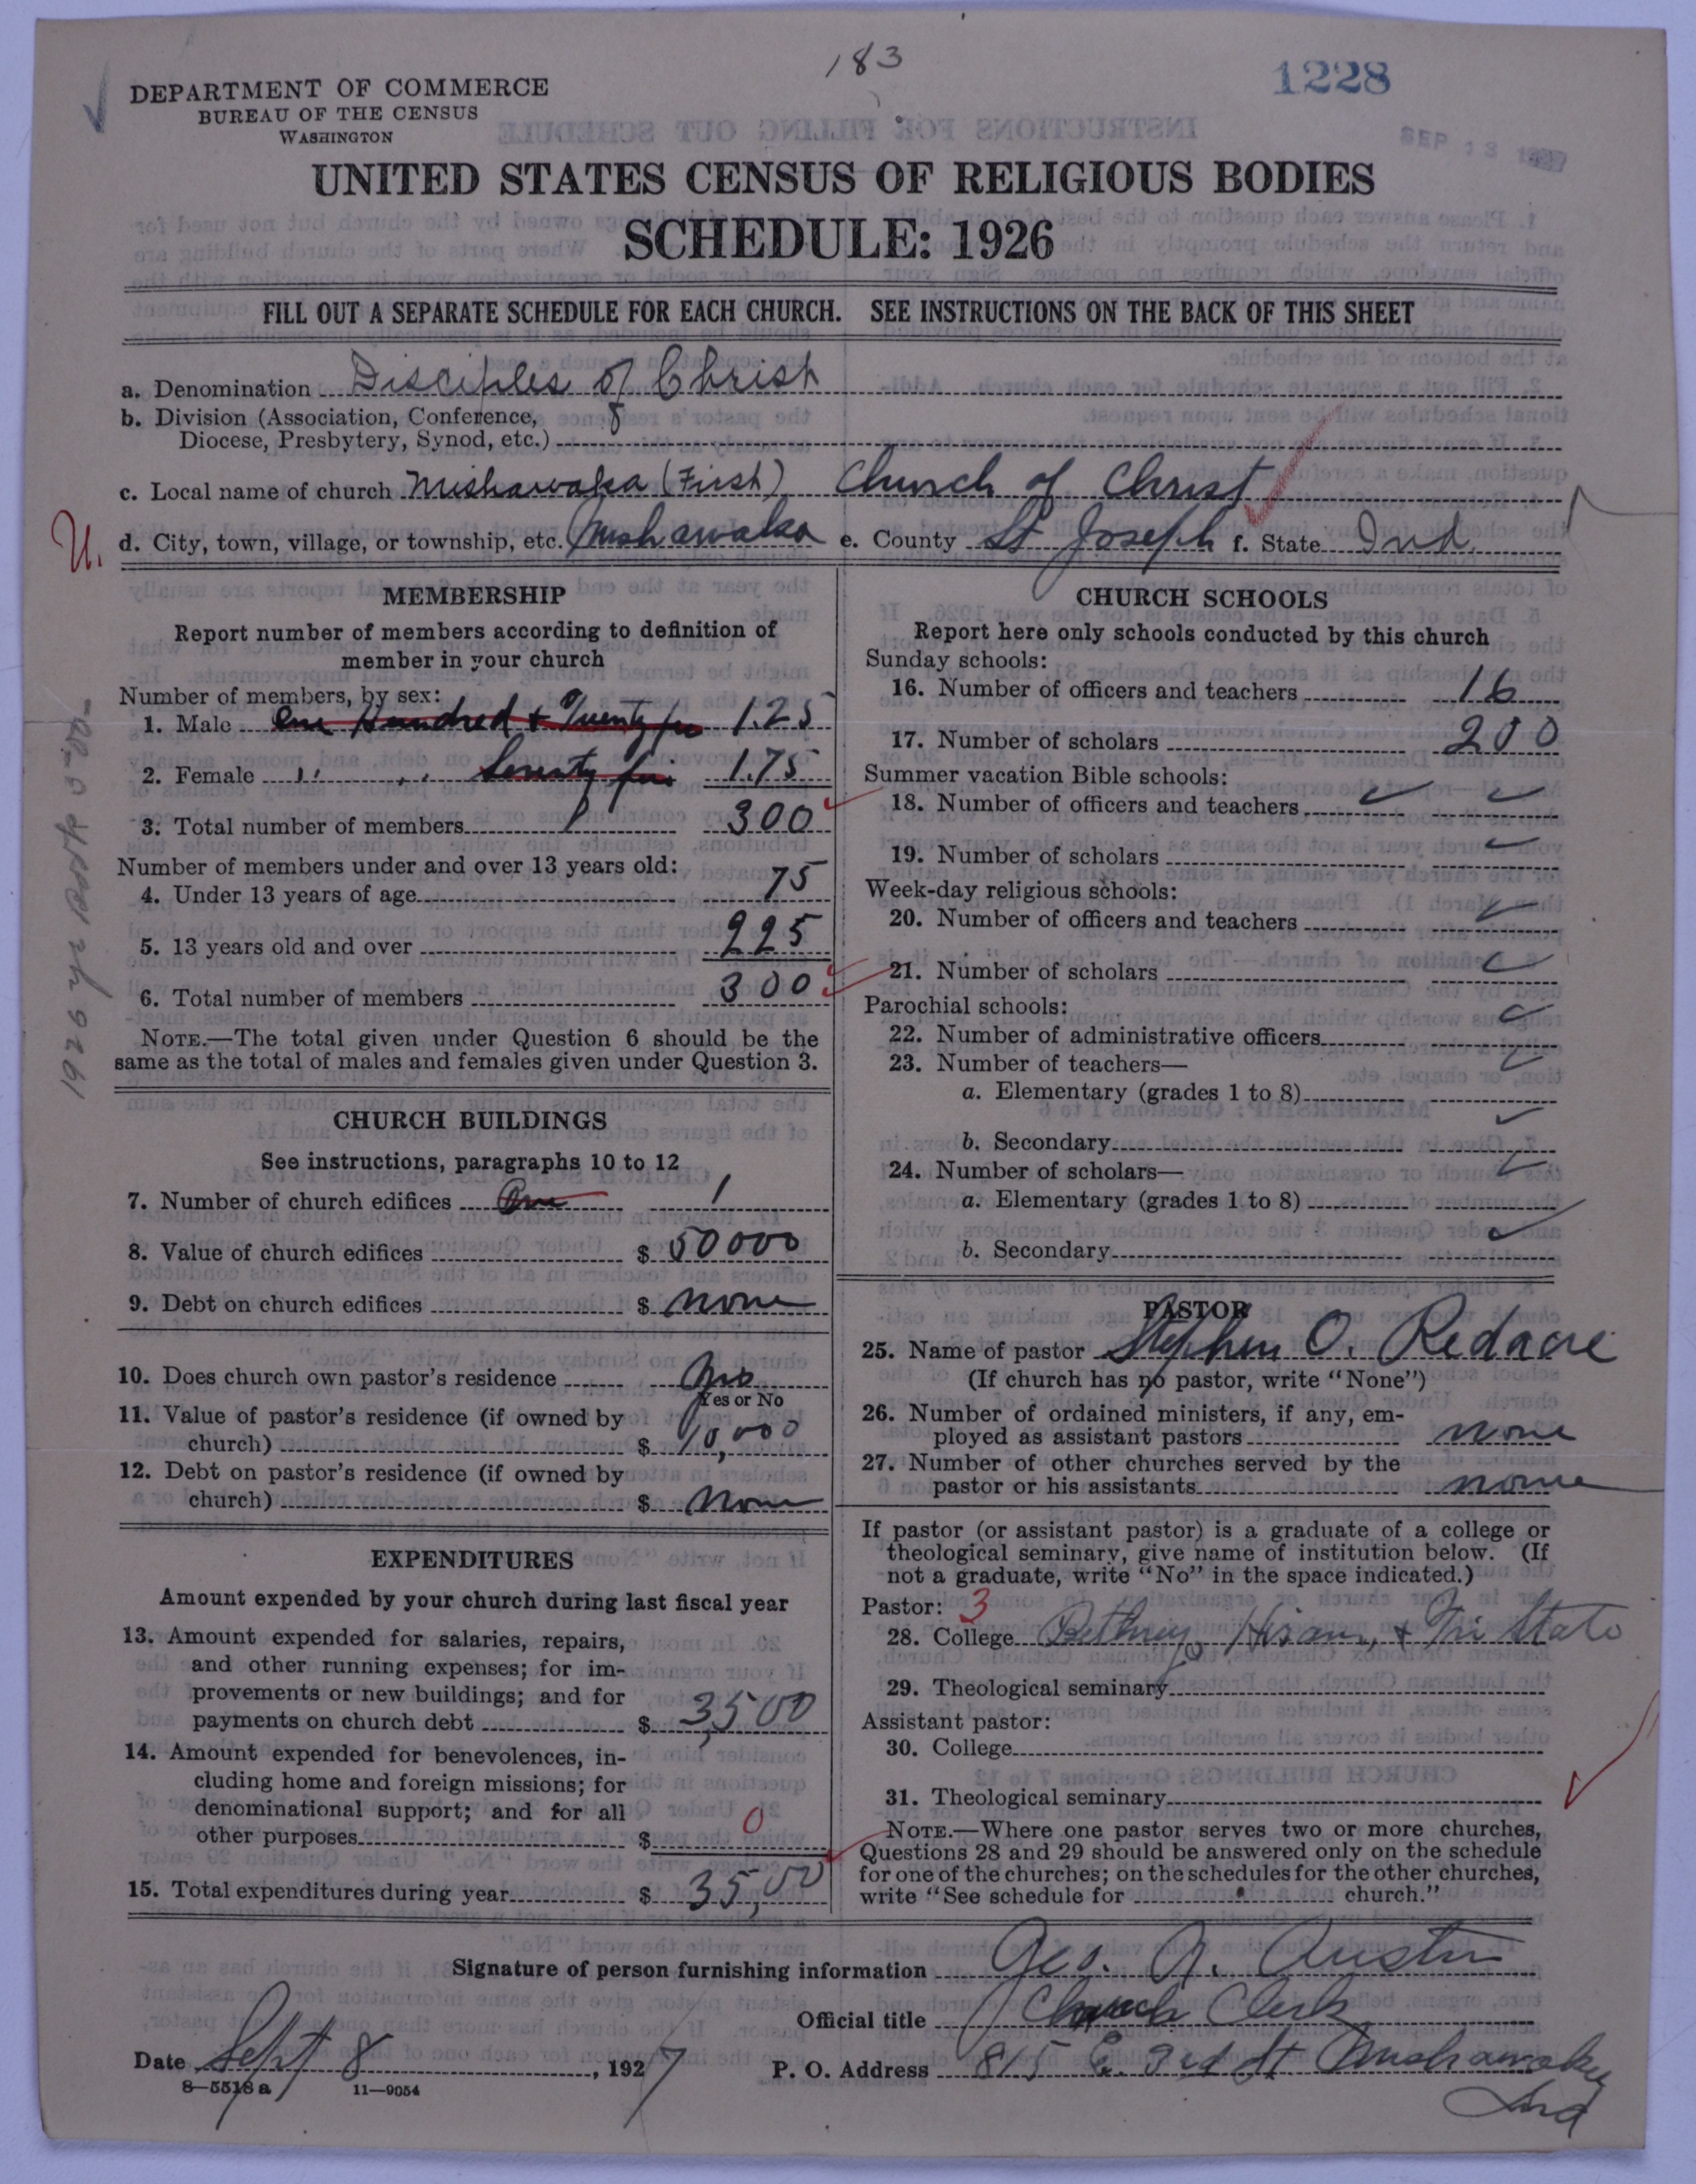 183
1228
SEP 13 1927
DEPARTMENT OF COMMERCE
BUREAU OF THE CENSUS
WASHINGTON
UNITED STATES CENSUS OF RELIGIOUS BODIES
SCHEDULE: 1926
FILL OUT A SEPARATE SCHEDULE FOR EACH CHURCH. SEE INSTRUCTIONS ON THE BACK OF THIS SHEET
a. Denomination Disciples of Christ
b. Division (Association, Conference,
Diocese, Presbytery, Synod, etc.)
c. Local name of church Mishawaka (First) Church of Christ
U. d. City, town, village, or township, etc. Mishawaka e. County St Joseph f. State Ind.
MEMBERSHIP
Report number of members according to definition of
member in your church
Number of members, by sex:
1. Male One Hundred + Twenty five 125
2. Female " " Seventy five 175
3. Total number of members 300
Number of members under and over 13 years old:
4. Under 13 years of age 75
5. 13 years old and over 225
6. Total number of members 300
NOTE.—The total given under Question 6 should be the
same as the total of males and females given under Question 3.
CHURCH BUILDINGS
See instructions, paragraphs 10 to 12
7. Number of church edifices One 1
8. Value of church edifices $ 50000
9. Debt on church edifices $ none
10. Does church own pastor's residence
Yes or No
11. Value of pastor's residence (if owned by
church) $ 10,000
12. Debt on pastor's residence (if owned by
church) $ None
EXPENDITURES
Amount expended by your church during last fiscal year
13. Amount expended for salaries, repairs,
and other running expenses; for im-
provements or new buildings; and for
payments on church debt $ 3,500
14. Amount expended for benevolences, in-
cluding home and foreign missions; for
denominational support; and for all
other purposes $ 0
15. Total expenditures during year $ 35,00
CHURCH SCHOOLS
Report here only schools conducted by this church
Sunday schools:
16. Number of officers and teachers 16
17. Number of scholars 200
Summer vacation Bible schools:
18. Number of officers and teachers
19. Number of scholars
Week-day religious schools:
20. Number of officers and teachers
21. Number of scholars
Parochial schools:
22. Number of administrative officers
23. Number of teachers—
a. Elementary (grades 1 to 8)
b. Secondary
24. Number of scholars—
a. Elementary (grades 1 to 8)
b. Secondary
PASTOR
25. Name of pastor Stephen O. Redacre
(If church has no pastor, write "None")
26. Number of ordained ministers, if any, em-
ployed as assistant pastors none
27. Number of other churches served by the
pastor or his assistants none
If pastor (or assistant pastor) is a graduate of a college or
theological seminary, give name of institution below. (If
not a graduate, write "No" in the space indicated.)
Pastor: 3
28. College Bethany, Hiram, + Tri State
29. Theological seminary
Assistant pastor:
30. College
31. Theological seminary
NOTE.—Where one pastor serves two or more churches,
Questions 28 and 29 should be answered only on the schedule
for one of the churches; on the schedules for the other churches,
write "See schedule for church."
Signature of person furnishing information Geo. A. Austin
Official title Church Clerk
Date Sept 8, 1927 P. O. Address 815 E. 3rd St Mishawaka
Ind
8—5518 a 11—9054